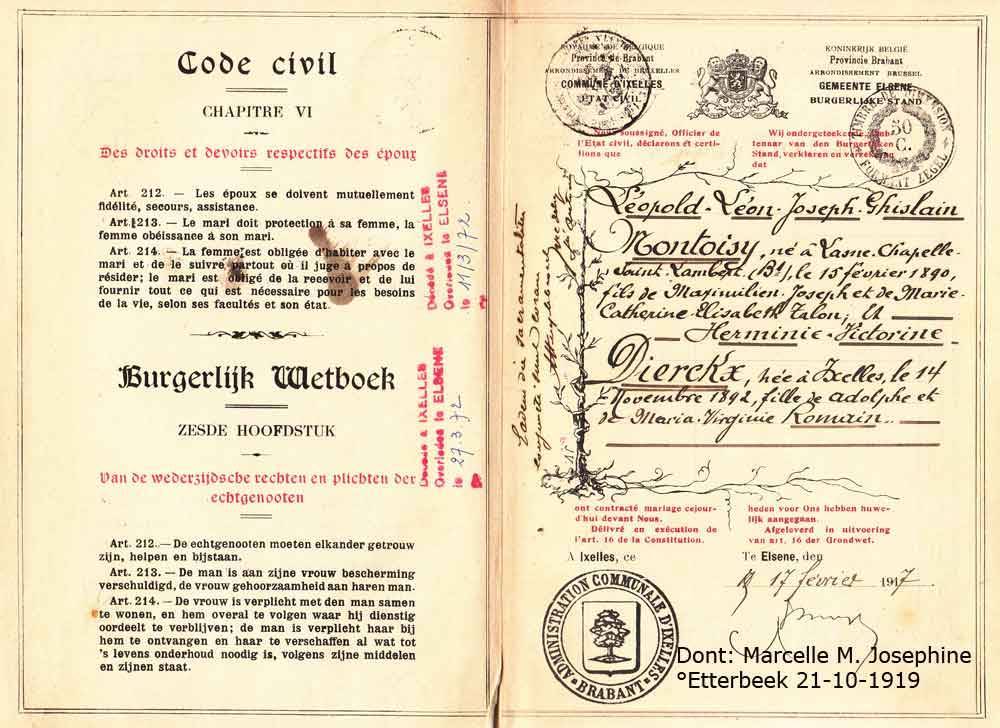 Code civil
CHAPITRE VI
Des droits et devoirs respectifs des époux
Art. 212. — Les époux se doivent mutuellement
fidélité, secours, assistance.
Art. 213. — Le mari doit protection à sa femme, la
femme obéissance à son mari.
Art. 214. — La femme est obligée d'habiter avec le
mari et de le suivre partout où il juge à propos de
résider; le mari est obligé de la recevoir et de lui
fournir tout ce qui est nécessaire pour les besoins
de la vie, selon ses facultés et son état.
Burgerlijk Wetboek
ZESDE HOOFDSTUK
Van de wederzijdsche rechten en plichten der
echtgenooten
Art. 212. — De echtgenooten moeten elkander getrouw
zijn, helpen en bijstaan.
Art. 213. — De man is aan zijne vrouw bescherming
verschuldigd, de vrouw gehoorzaamheid aan haren man.
Art. 214. — De vrouw is verplicht met den man samen
te wonen, en hem overal te volgen waar hij dienstig
oordeelt te verblijven; de man is verplicht haar bij
hem te ontvangen en haar te verschaffen al wat tot
's levens onderhoud noodig is, volgens zijne middelen
en zijnen staat.
Décédé à IXELLES
Overleden te ELSENE
le 11/3/72
Décédé à IXELLES
Overleden te ELSENE
le 27.3.72
ROYAUME DE BELGIQUE
Province de Brabant
ARRONDISSEMENT DE BRUXELLES
COMMUNE D'IXELLES
ÉTAT CIVIL
KONINKRIJK BELGIË
Provincie Brabant
ARRONDISSEMENT BRUSSEL
GEMEENTE ELSENE
BURGERLIJKE STAND
TIMBRE DE DIMENSION
50
C.
FORMAAT ZEGEL
Nous soussigné, Officier de
l'Etat civil, déclarons et certi-
fions que
Wij ondergeteekende, Amb-
tenaar van den Burgerlijken
Stand, verklaren en verzekeren
dat
Léopold-Léon-Joseph-Ghislain
Montoisy, né à Lasne-Chapelle-
Saint-Lambert (Bt), le 15 février 1890,
fils de Maximilien-Joseph et de Marie-
Catherine-Elisabeth Talon; Et
Herminie-Victorine
Dierckx, née à Ixelles, le 14
Novembre 1892, fille de Adolphe et
de Maria-Virginie Romain.
ont contracté mariage cejour-
d'hui devant Nous.
Délivré en exécution de
l'art. 16 de la Constitution.
heden voor Ons hebben huwe-
lijk aangegaan.
Afgeleverd in uitvoering
van art. 16 der Grondwet.
A Ixelles, ce
Te Elsene, den
17 février 1917
ADMINISTRATION COMMUNALE D'IXELLES
BRABANT
Dont: Marcelle M. Josephine
°Etterbeek 21-10-1919